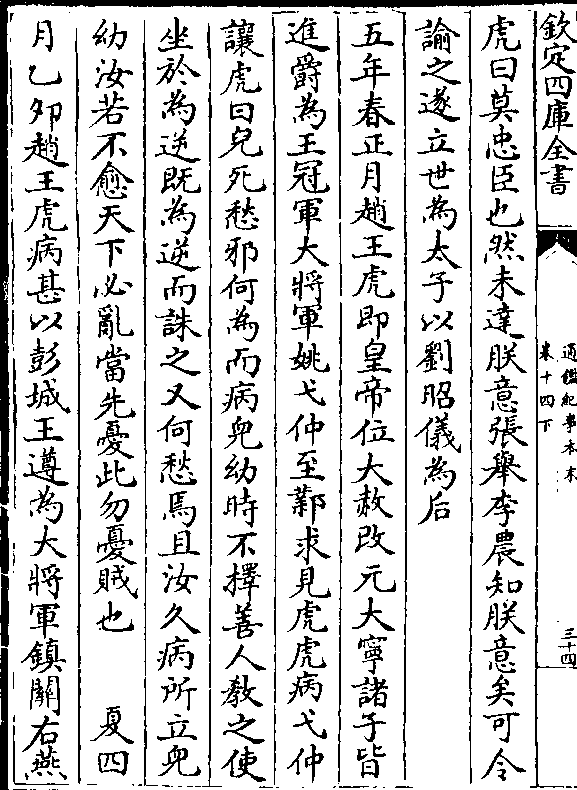 欽定四庫全書
通鑑紀事本末
卷十四下
三十四
虎曰莫忠臣也然未達朕意張舉李農知朕意矣可令
諭之遂立世為太子以劉昭儀為后
五年春正月趙王虎即皇帝位大赦改元大寧諸子皆
進爵為王冠軍大將軍姚弋仲至鄴求見虎虎病弋仲
讓虎曰兒死愁邪何為而病兒幼時不擇善人教之使
坐於為逆既為逆而誅之又何愁焉且汝久病所立兒
幼汝若不愈天下必亂當先憂此勿憂賊也　夏四
月乙夘趙王虎病甚以彭城王遵為大將軍鎮關右燕